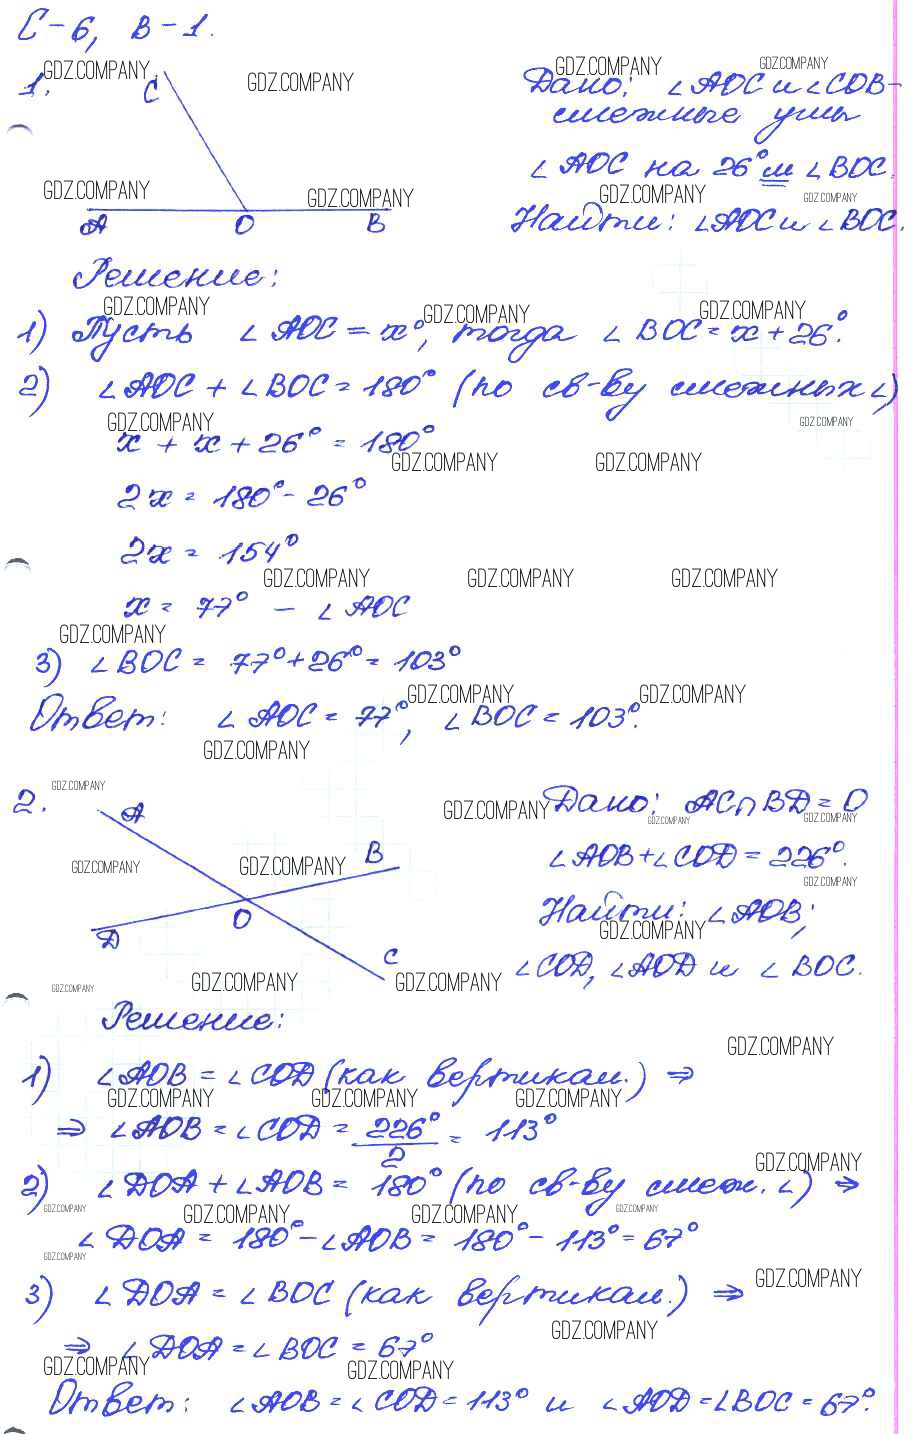 С-6, В-1.
1.
C
A O B
Дано: ∠AOC и ∠COB-
смежные углы
∠AOC на 26° м ∠BOC.
Найти: ∠AOC и ∠BOC.
Решение:
1) Пусть ∠AOC = x°, тогда ∠BOC = x + 26°.
2) ∠AOC + ∠BOC = 180° (по св-ву смежных ∠)
x + x + 26° = 180°
2x = 180° - 26°
2x = 154°
x = 77° - ∠AOC
3) ∠BOC = 77° + 26° = 103°
Ответ: ∠AOC = 77°, ∠BOC = 103°.
2.
A
B
O
D
C
Дано: AC∩BD = O
∠AOB + ∠COD = 226°.
Найти: ∠AOB;
∠COD, ∠AOD и ∠BOC.
Решение:
1) ∠AOB = ∠COD (как вертикал.) ⇒
⇒ ∠AOB = ∠COD = 226°/2 = 113°
2) ∠DOA + ∠AOB = 180° (по св-ву смеж. ∠) ⇒
∠DOA = 180° - ∠AOB = 180° - 113° = 67°
3) ∠DOA = ∠BOC (как вертикал.) ⇒
⇒ ∠DOA = ∠BOC = 67°
Ответ: ∠AOB = ∠COD = 113° и ∠AOD = ∠BOC = 67°.
GDZ.COMPANY